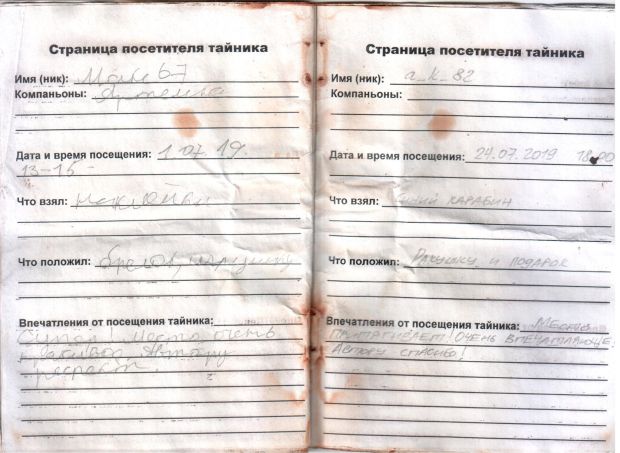 Страница посетителя тайника
Имя (ник): Макс 67
Компаньоны:
Дата и время посещения: 1.07.19.
13-15
Что взял: наклейки
Что положил: брелок,
Впечатления от посещения тайника:
Супер! Место очень
красивое. Автору
респект.
Страница посетителя тайника
Имя (ник): a_k_82
Компаньоны:
Дата и время посещения: 24.07.2019 18:00
Что взял: карабин
Что положил: Ракушку и подарок
Впечатления от посещения тайника: Место
очень впечатляюще.
Автору спасибо!